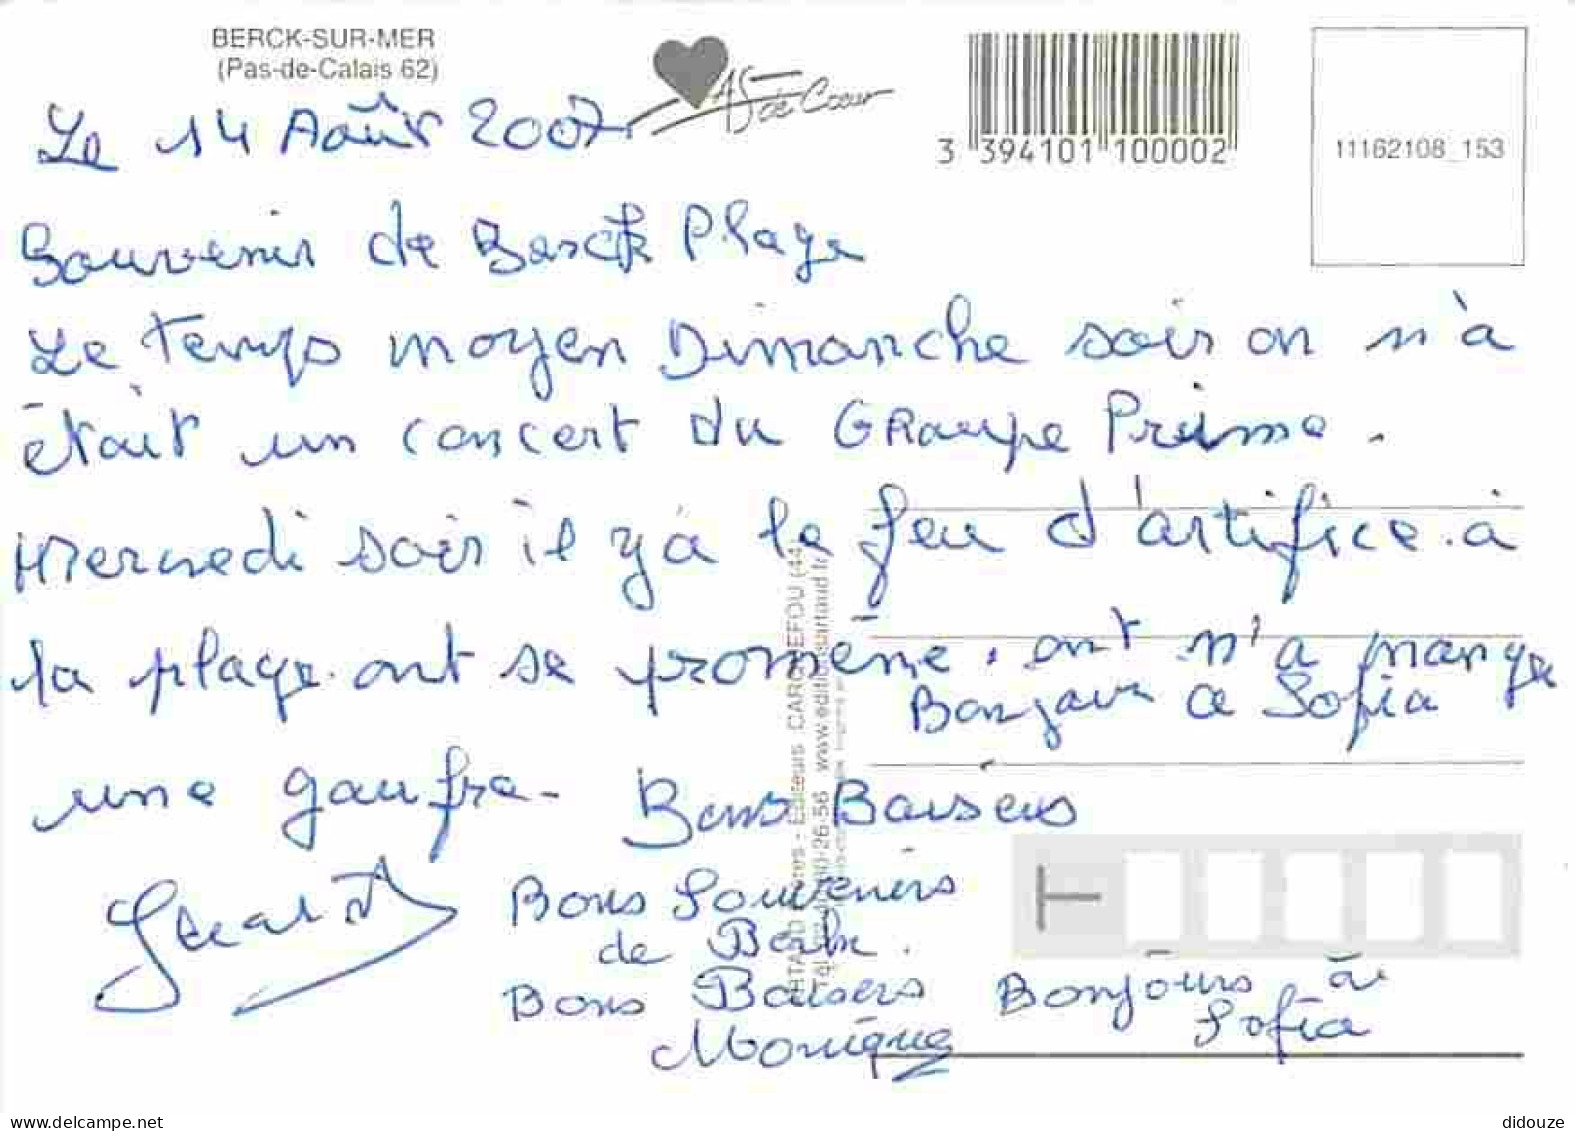 BERCK-SUR-MER
(Pas-de-Calais 62)
AS de Cœur
3 394101 100002
11162108_153
Le 14 Août 2007
Souvenir de Berck Plage
Le temps moyen Dimanche soir on n'à
était un concert du GRoupe Prisme.
Mercredi soir il y à le feu d'artifice. à
la plage. ont se promène. ont n'a mangé
Bonjour a Sofia
une gaufre. Bons Baisers
Bons Souvenirs
de Berk.
Bons Baisers
Monique
Bonjours à
Sofia
Editeurs CARQUEFOU (44)
delcampe.net
didouze